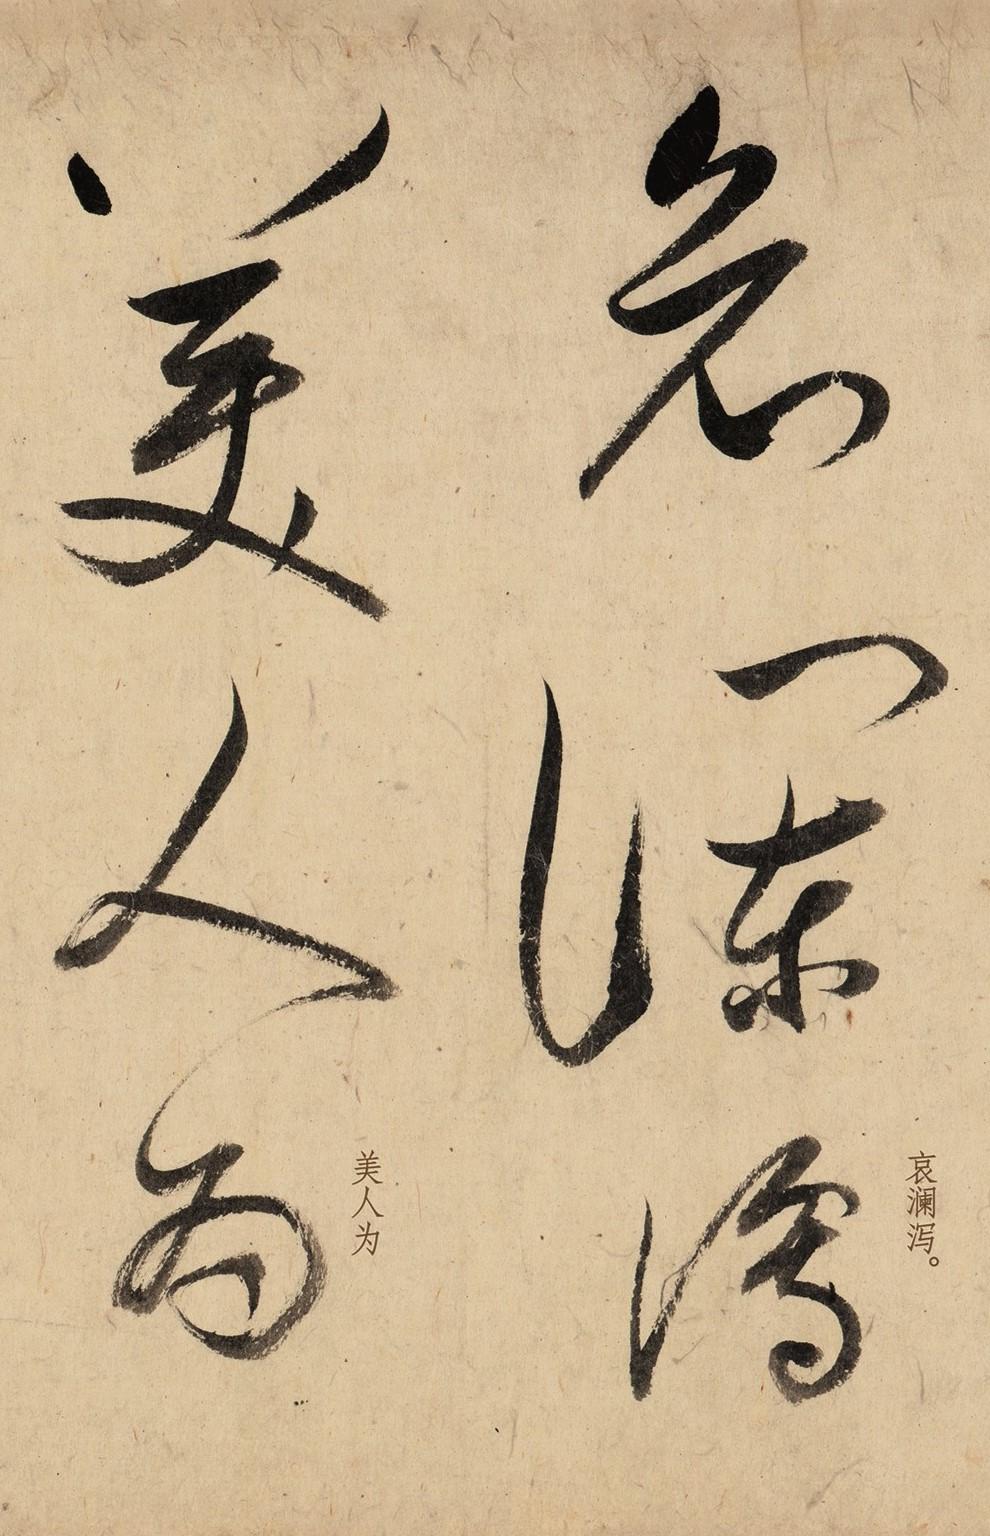 哀瀾瀉
哀澜泻。
美人為
美人为